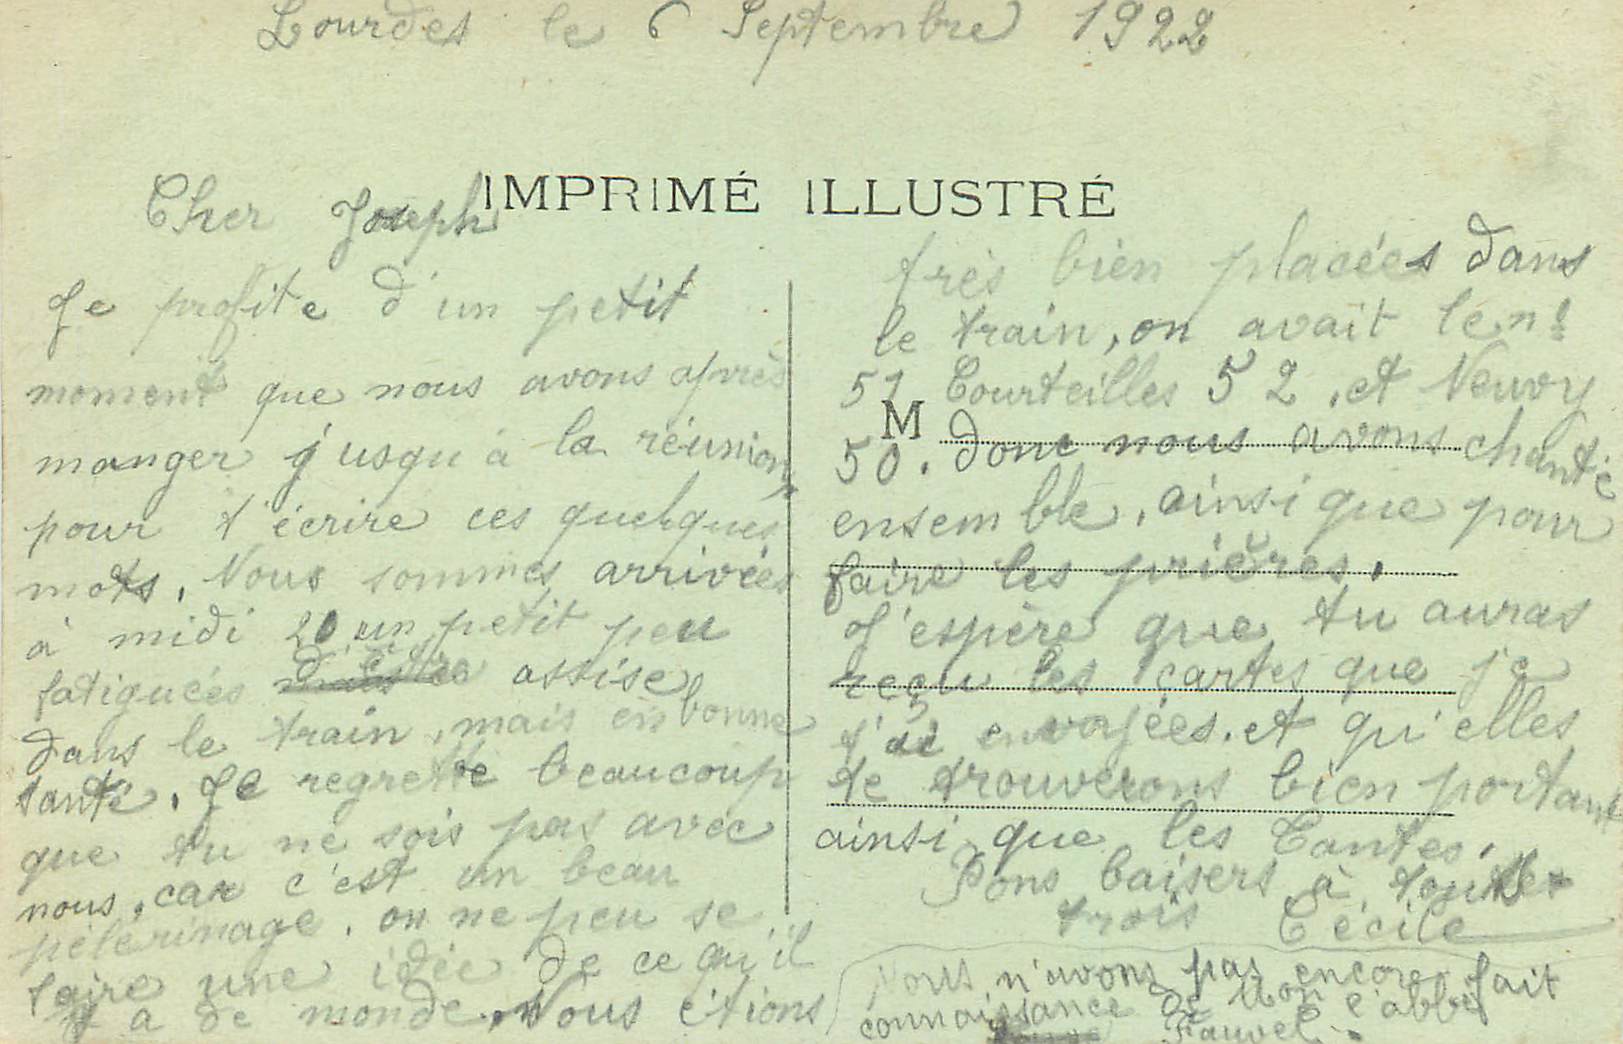 Lourdes le 6 Septembre 1922
IMPRIMÉ ILLUSTRÉ
Cher Joseph
Je profite d'un petit
moment que nous avons après
manger jusqu'à la réunion,
pour t'écrire ces quelques
mots. Nous sommes arrivées
à midi 20 un petit peu
fatiguées d'être assise
dans le train, mais en bonne
santé. Je regrette beaucoup
que tu ne sois pas avec
nous, car c'est un beau
pélérinage. on ne peu se
faire une idée de ce qu'il
y a de monde. Nous étions
très bien placées dans
le train, on avait le n°
51 Courteilles 52, et Neuvy
M
50. donc nous avons chanté
ensemble, ainsi que pour
faire les prières.
J'espère que tu auras
reçu les cartes que je
t'ai envoyées. et qu'elles
te trouverons bien portant
ainsi que les Tantes.
Bons baisers à tous les
trois Cécile
Nous n'avons pas encore fait
connaissance de Mon l'abbé
Fauvel.